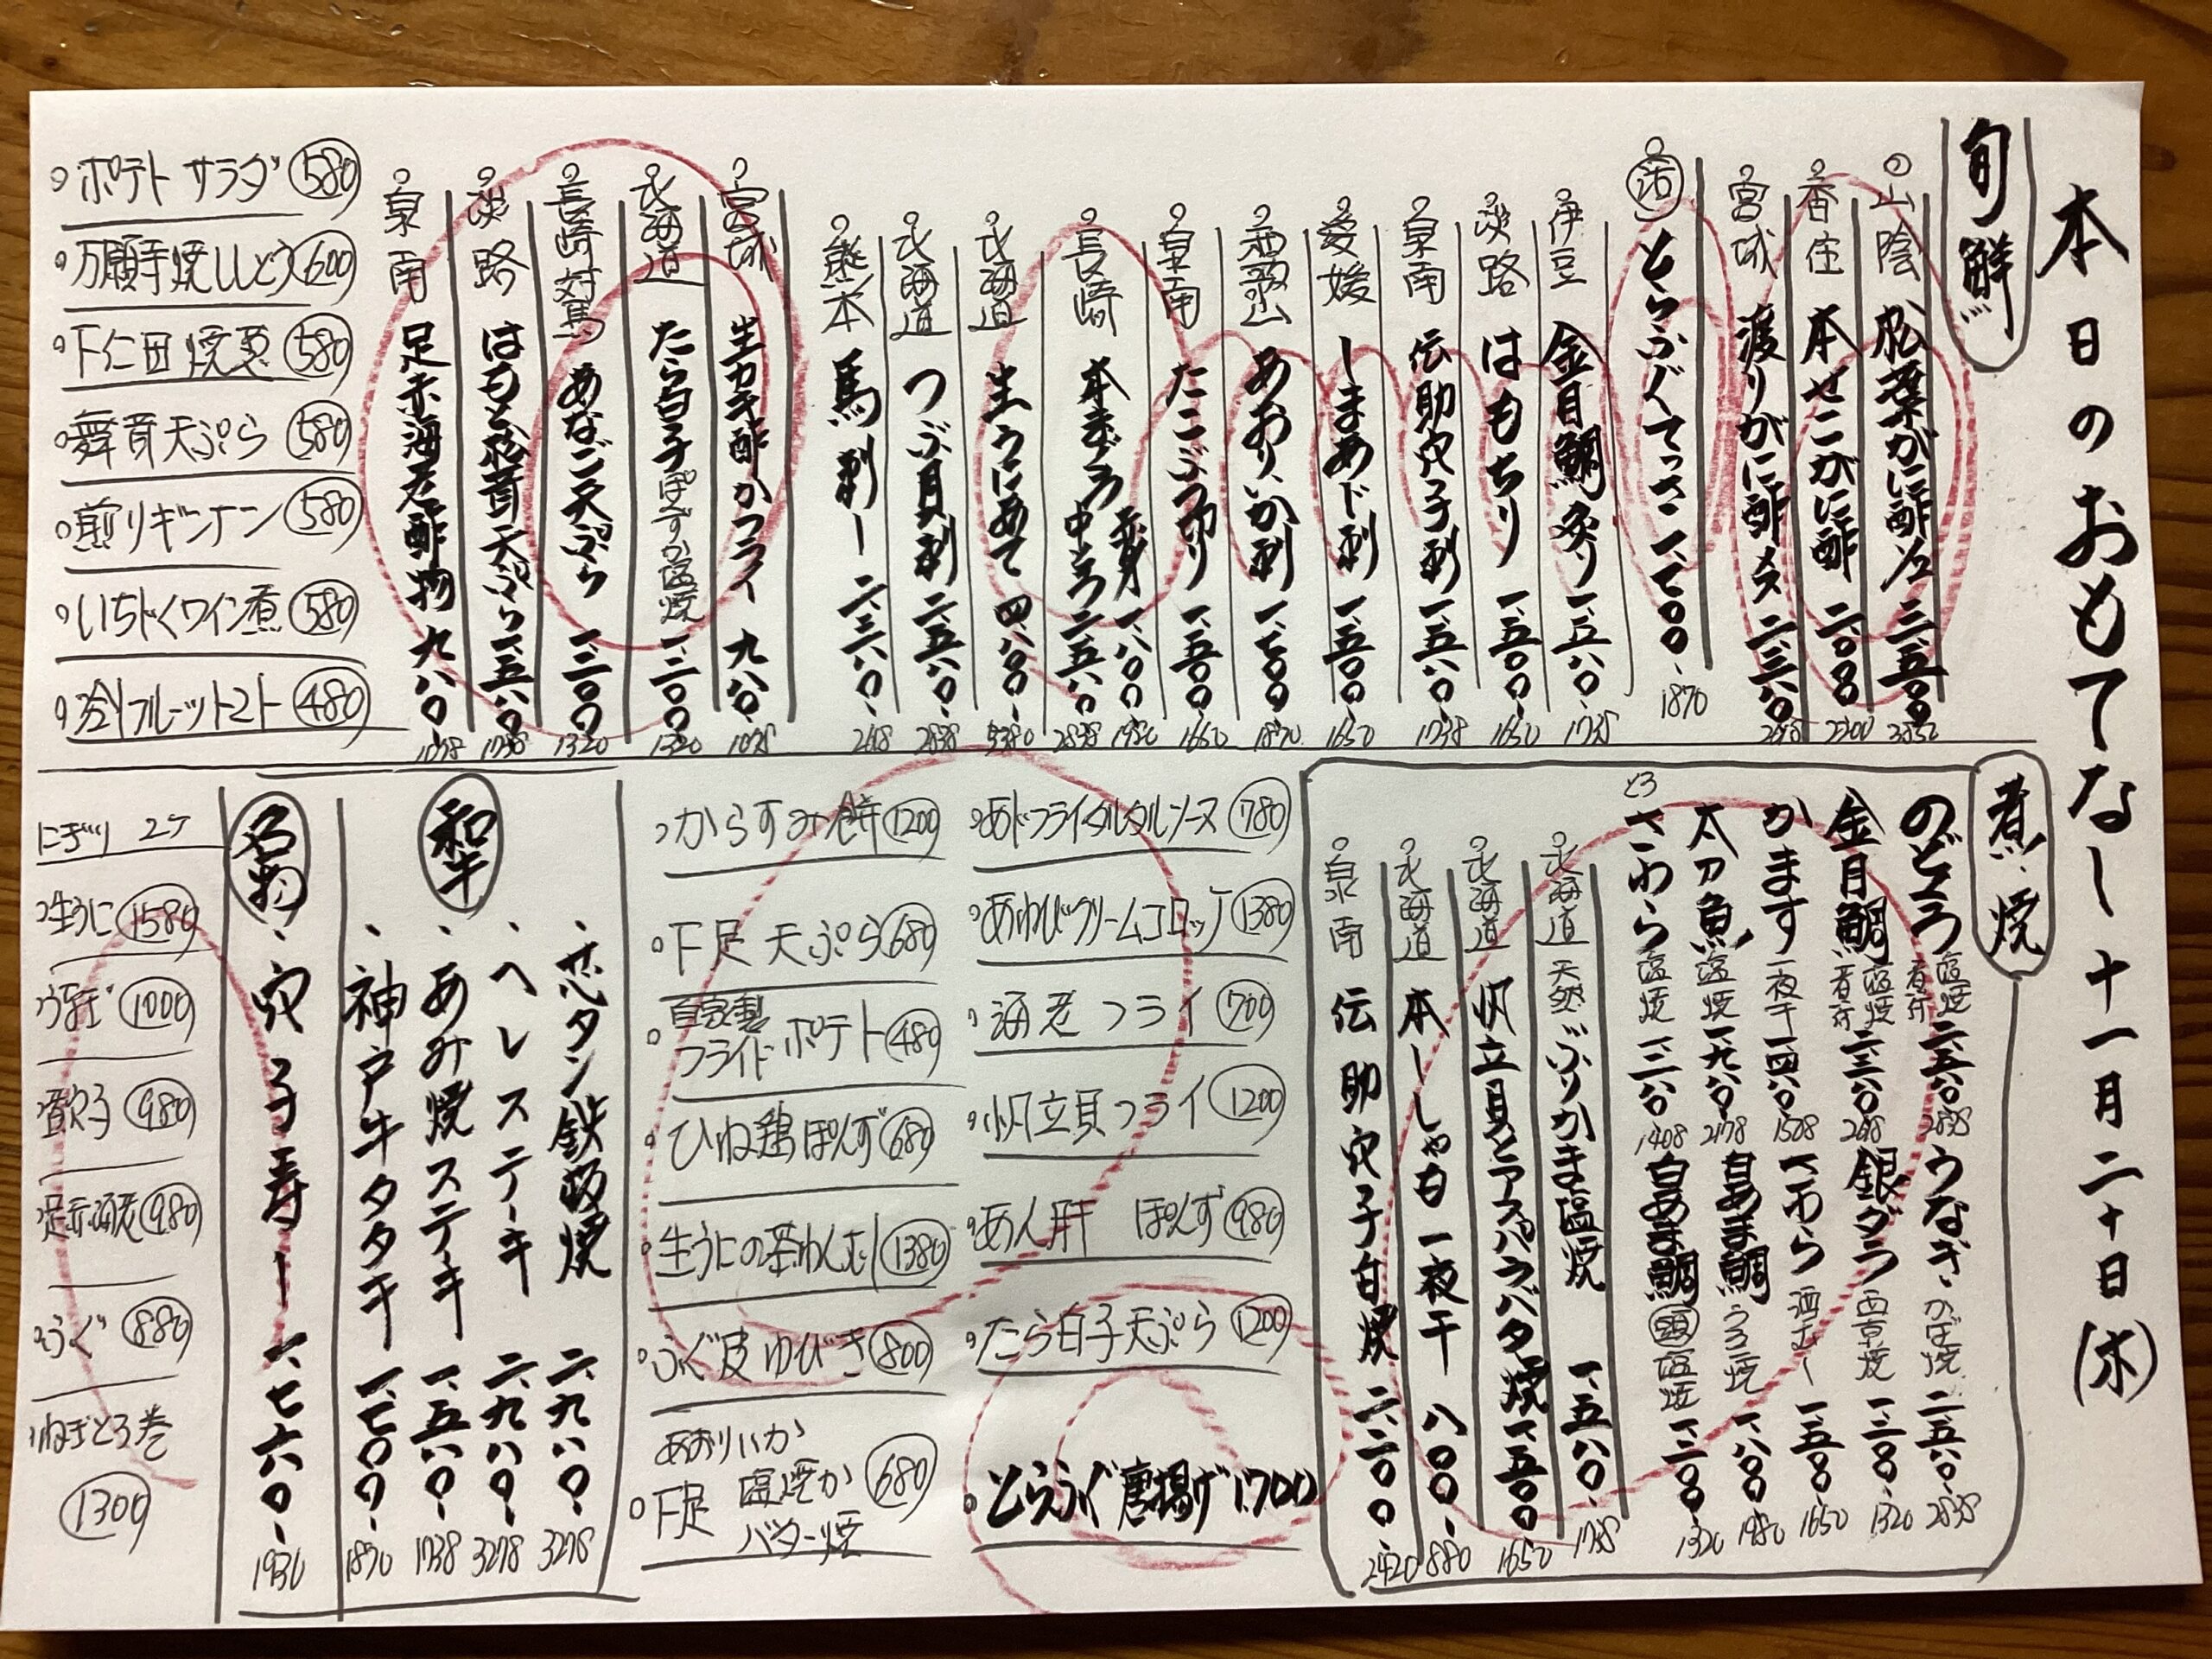 本日のおもてなし 十一月二十日(木)
旬鮮
山陰 松葉がに酢 三、五〇〇 3850
香住 本せこがに酢 二、〇〇〇 2200
宮城 渡りがに酢 メス 二、三八〇 2618
活 とらふぐてっさ 一、七〇〇 1870
伊豆 金目鯛炙り 一、五八〇 1738
淡路 はもちり 一、五〇〇 1650
泉南 伝助穴子刺 一、五八〇 1738
愛媛 しまあじ刺 一、五〇〇 1650
和歌山 あおりいか刺 一、七〇〇 1870
泉南 たこぶつ切り 一、五〇〇 1650
長崎 本まぐろ 赤身 一、八〇〇 1980
中とろ 二、五八〇 2838
北海道 生うにあて 四、八〇〇 5280
北海道 つぶ貝刺 二、五八〇 2838
熊本 馬刺し 二、三八〇 2618
宮城 生カキ酢かフライ 九八〇 1078
北海道 たら白子 ぽんずか塩焼 一、二〇〇 1320
長崎対馬 あなご天ぷら 一、二〇〇 1320
淡路 はもと松茸天ぷら 一、五八〇 1738
泉南 足赤海老酢物 九八〇 1078
ポテトサラダ 580
万願寺焼ししとう 600
下仁田焼葱 580
舞茸天ぷら 580
煎りギンナン 580
いちじくワイン煮 580
冷しフルーツトマト 480
煮・焼
のどぐろ 塩焼 煮付 二、五八〇 2838
金目鯛 塩焼 煮付 二、三八〇 2618
かます 一夜干 一、四八〇 1508
太刀魚 塩焼 一、九八〇 2178
とろ さわら 塩焼 一、二八〇 1408
うなぎ かば焼 二、五八〇 2838
銀ダラ 西京焼 一、二〇〇 1320
さわら 酒むし 一、五〇〇 1650
白あま鯛 うろこ焼 一、八〇〇 1980
白あま鯛 頭 塩焼 一、二〇〇 1320
北海道 天然ぶりかま塩焼 一、五八〇 1738
北海道 帆立貝とアスパラバタ焼 一、五〇〇 1650
北海道 本ししゃも一夜干 八〇〇 880
泉南 伝助穴子白焼 二、二〇〇 2420
あじフライタルタルソース 780
あわびクリームコロッケ 1380
海老フライ 700
帆立貝フライ 1200
あん肝 ぽんず 980
たら白子天ぷら 1200
とらふぐ唐揚げ 1,700
からすみ餅 1200
下足天ぷら 680
自家製フライドポテト 480
ひね鶏ぽんず 680
生うにの茶わんむし 1380
ふぐ皮ゆびき 800
あおりいか
下足 塩焼か バター焼 680
和牛
芯タン鉄板焼 二、九八〇 3278
ヘレステーキ 二、九八〇 3278
あみ焼ステーキ 一、五八〇 1738
神戸牛タタキ 一、七〇〇 1870
名物
穴子寿し 一、七六〇 1936
にぎり 2ケ
生うに 1580
980
足赤海老 980
ふぐ 880
ねぎとろ巻 1300